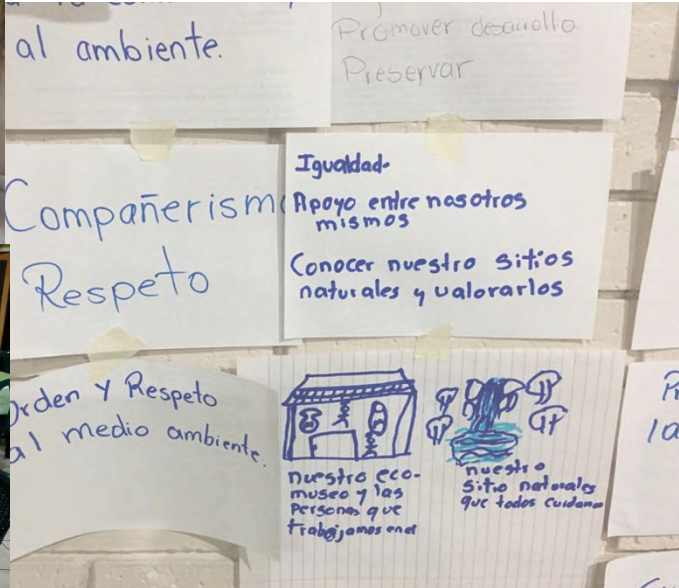 al ambiente.
Promover desarrollo
Preservar
Compañerism
Respeto
Igualdad-
Apoyo entre nosotros
mismos
Conocer nuestro sitios
naturales y valorarlos
Orden y Respeto
al medio ambiente.
nuestro eco-
museo y las
personas que
trabajamos en el
nuestro
sitio naturales
que todos cuidamos
la